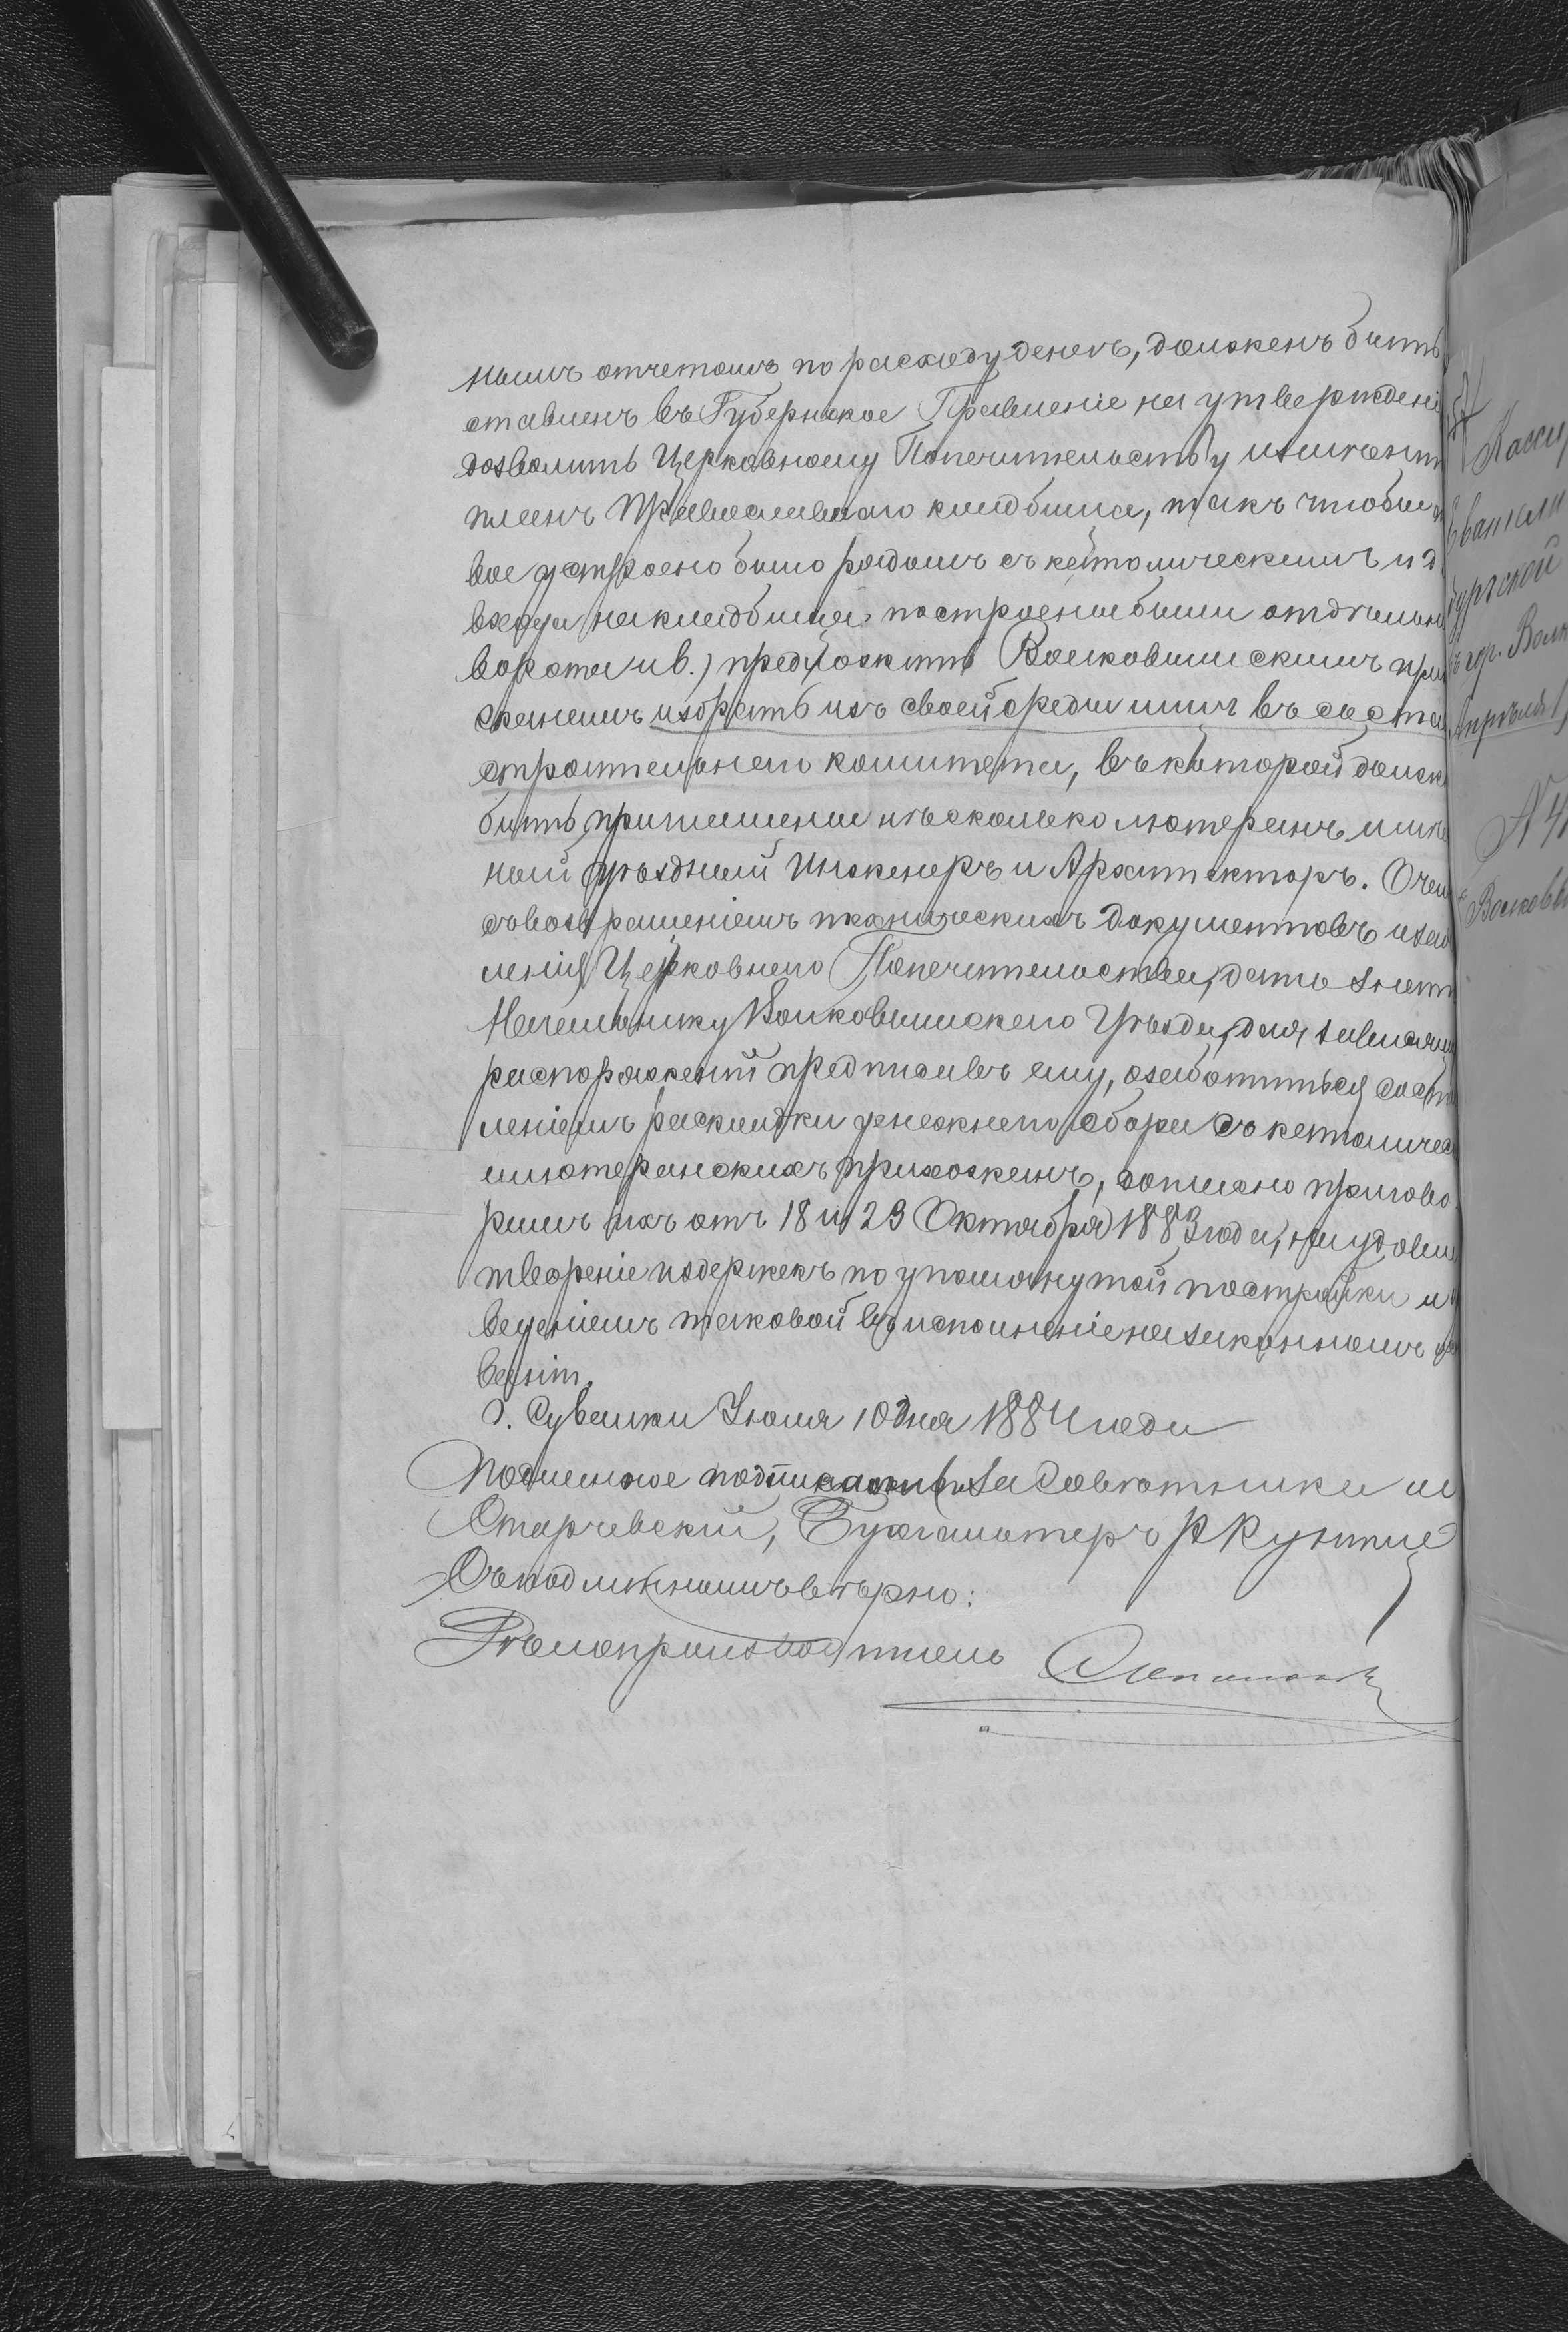 нымъ отчетомъ по расходу денегъ, долженъ быть
ставленъ въ Губернское Правленіе на утвержденіе
дозволить Церковному Попечительству измѣнить
планъ Православнаго кладбища, такъ чтобы
вое устроено было рядомъ съ католическимъ и д
входа на кладбища, построены были отдѣльные
ворота и в.) предложить Волковышскимъ при
жанамъ избрать изъ своей среды лицъ въ соста
строительнаго комитета, въ который долж
быть приглашены нѣсколько лютеранъ и мѣ
ный Уѣздный Инженеръ и Архитекторъ. О чем
съ возвращеніемъ техническихъ документовъ
ленія Церковнаго Попечительства, дать знать
Начальнику Волковышскаго Уѣзда, для зависящ
распоряженій предписавъ ему, озаботиться соста
леніемъ раскладки денежнаго сбора съ католичес
и лютеранскихъ прихожанъ, согласно пригово
рамъ ихъ отъ 18 и 23 Октября 1883 года, на удовле
твореніе издержекъ по упомянутой постройки и
веденіемъ таковой въ исполненіе на законномъ
ваніи.
г. Сувалки Іюля 10 дня 1884 года
Подлинное подписали: За Совѣтника
Старчевскій, Бухгалтеръ
Съ подлиннымъ вѣрно:
Дѣлопроизводитель
Касси
Евангели
бургской
въ гор. Волк
Апрѣля
N 4
Волковы